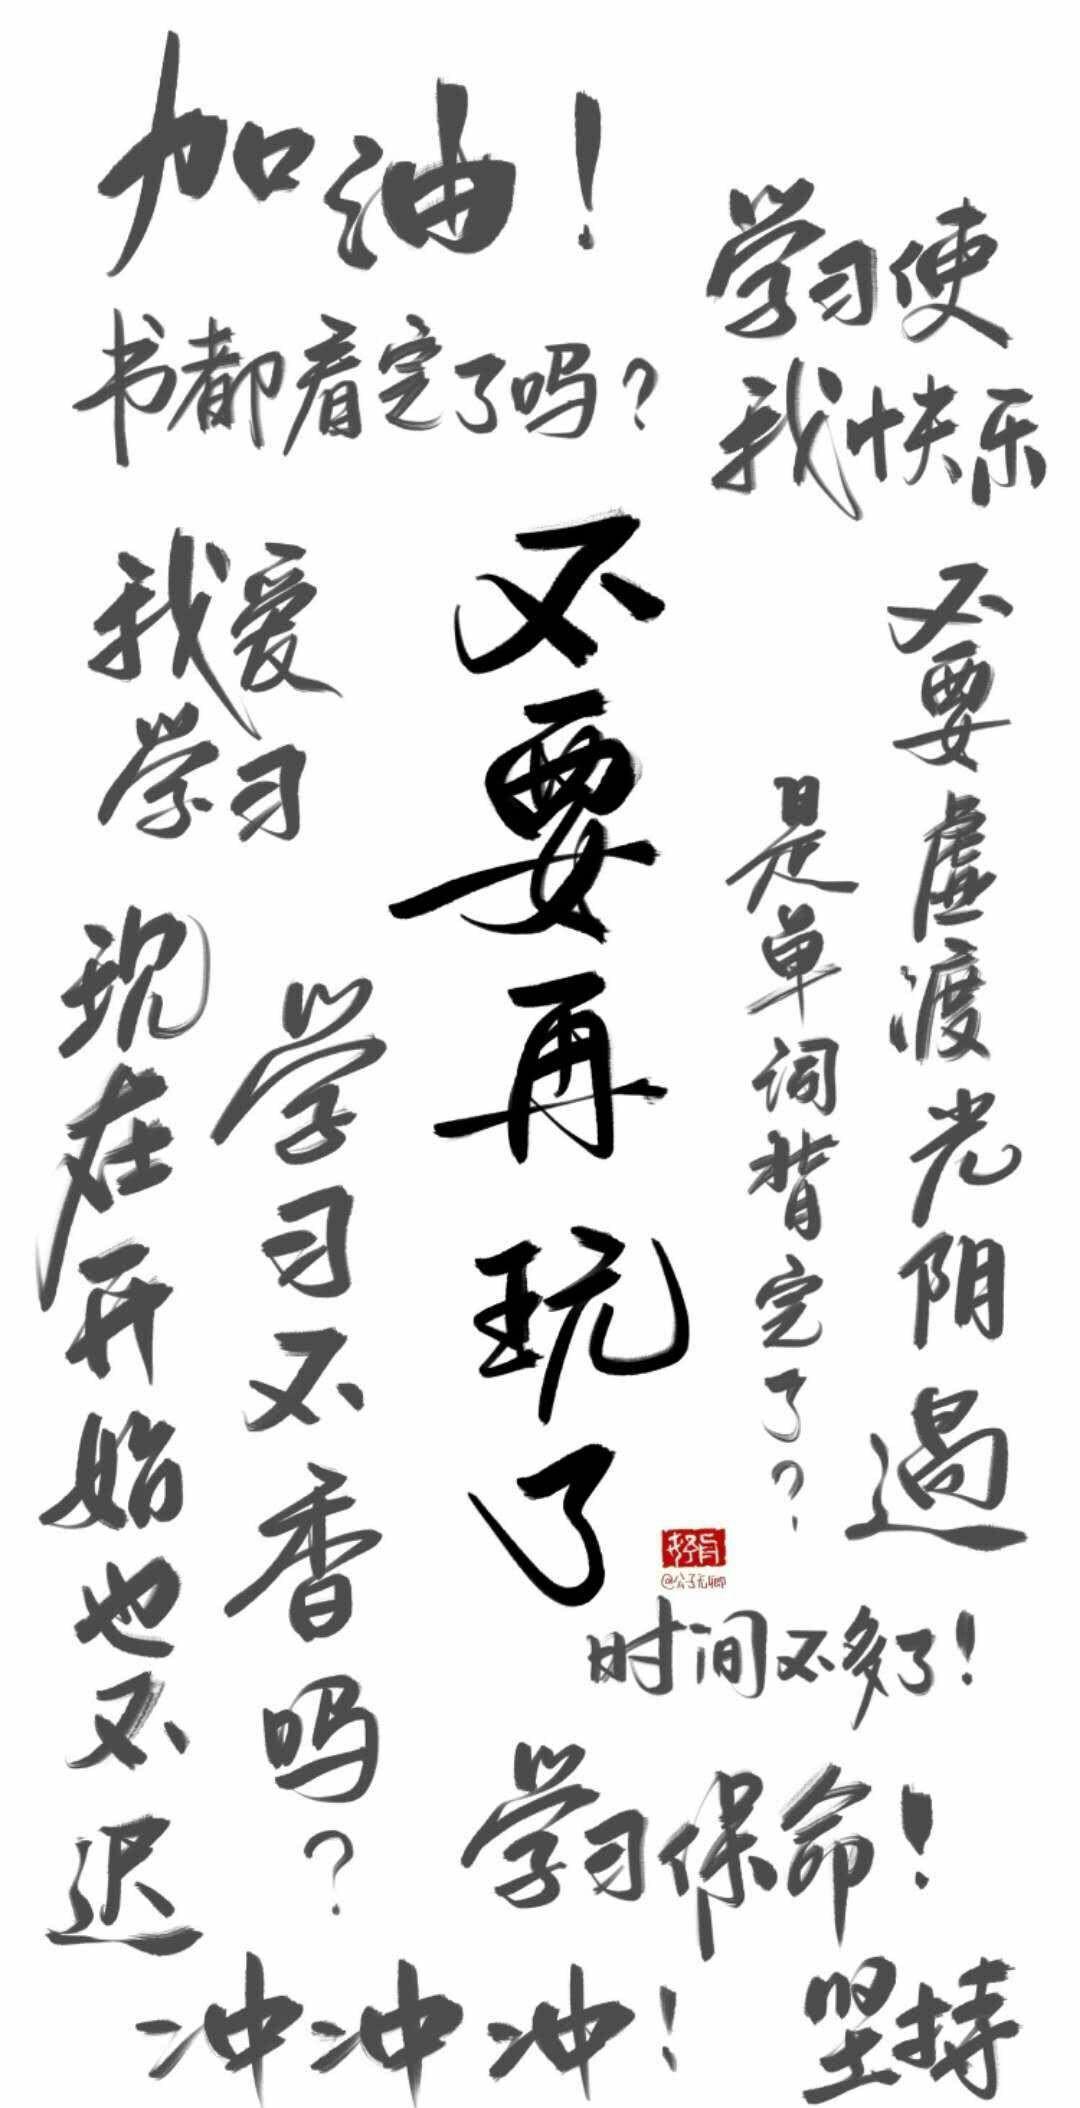 加油!
学习使
我快乐
书都看完了吗?
我爱
学习
不要再玩了
不要虚渡光阴
是单词背完了?
过
现在开始也不迟
学习不香吗?
@公子无卿
时间不多了!
学习保命!
冲冲冲!
坚持